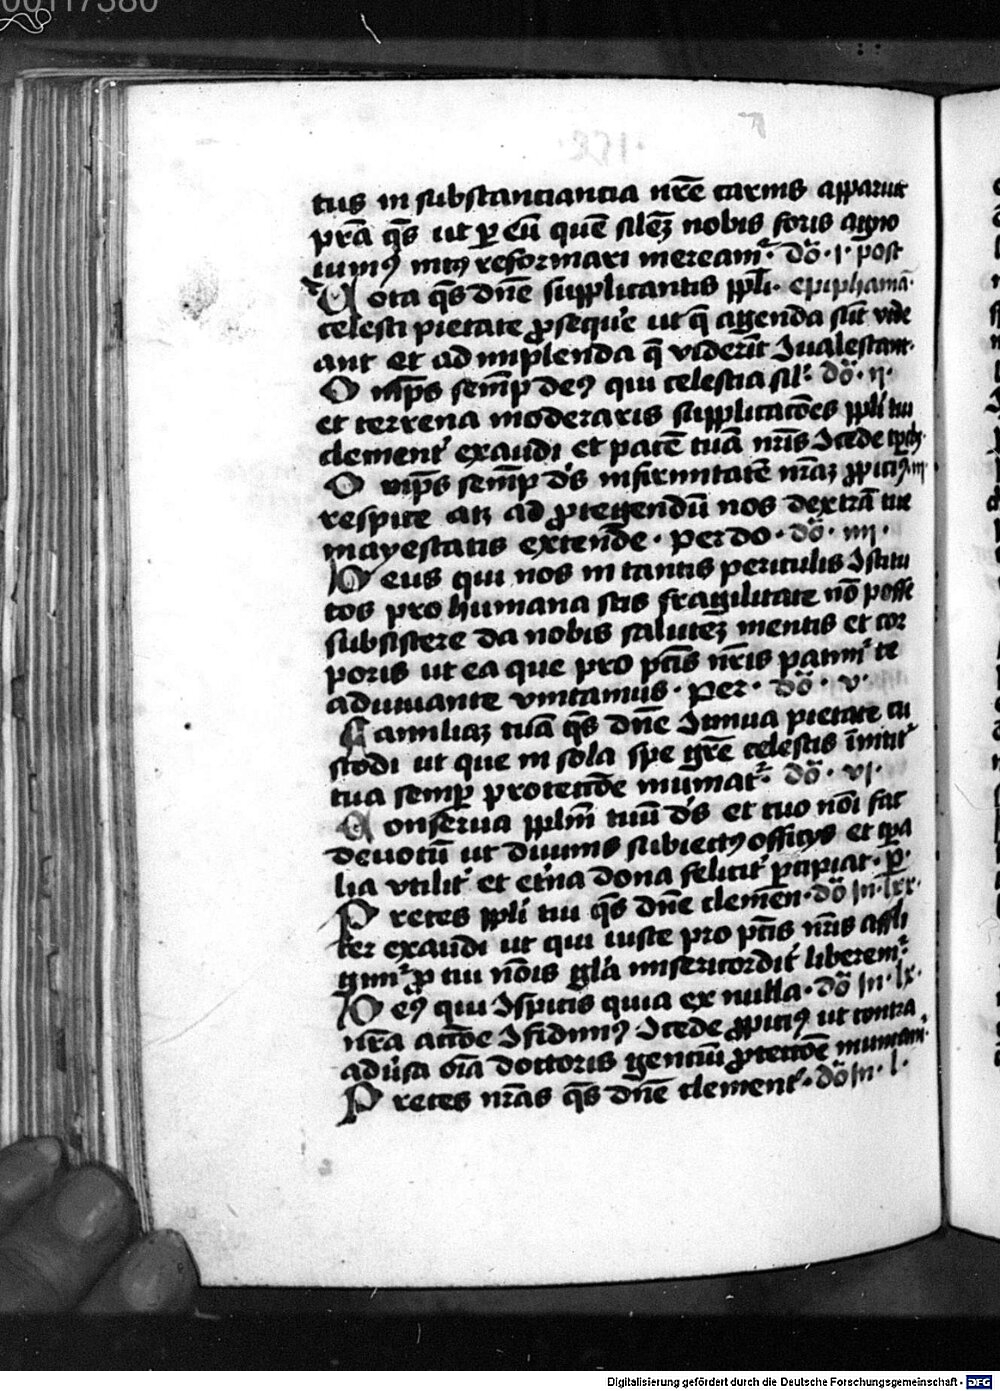 00117380
tus in substanciancia nr̄e carnis apparuit
pr̄a qs̄ ut p eū quē silēʒ nobis foris agno
uimꝰ intꝰ reformari mereamʳ. dō. i. post
Vota qs̄ dn̄e supplicantis ppli. epiphaniā.
celesti pietate ꝓsequ'e ut q̄ agenda sūt vide
ant et ad implenda q̄ viderīt Jualescant.
Omp̄s semp̄ deꝰ qui celestia sil' dō. ii.
et terrena moderaris supplicacōes ppli tui
clement' exaudi et pacē tuā nr̄is Jcede tp̄ibꝫ.
Omp̄s semp̄ ds̄ infirmitatē nr̄aʒ ꝓpiciꝰ iii
respice atꝫ ad ꝓtegendū nos dextrā tue
mayestatis extende. per do. dō. iiii.
Deus qui nos in tantis periculis Jstitu
tos pro humana scis fragilitate nō posse
subsistere da nobis salutēʒ mentis et cor
poris ut ea que pro pctīs nr̄is patimʳ te
adiuuante vincamus. per. dō. v.
Familiaʒ tuā qs̄ dn̄e Jtinua pietate cu
stodi ut que in sola spe gr̄e celestis īnitit'
tua semp̄ protectiōe muniatʳ. dō. vi.
Conserua pplm̄ tuū ds̄ et tuo nōi fac
deuotū ut diuinis subiectꝰ officijs et tp̄a
lia vtilit' et et'na dona felicit' p̄cipiat. p̄.
Preces ppli tui qs̄ dn̄e clemen. dō in lxx.
ter exaudi ut qui iuste pro pctīs nr̄is affli
gimʳ ꝓ tui nōis gl̄a misericordit' liberemʳ.
Deꝰ qui Jspicis quia ex nulla. dō in lx.
nr̄a actiōe Jfidimꝰ Jcede ꝓpiciꝰ ut contra
adūsa oīa doctoris genciū ꝓtectiōe muniam̄.
Preces nr̄as qs̄ dn̄e clement'. dō in. l.
Digitalisierung gefördert durch die Deutsche Forschungsgemeinschaft - DFG